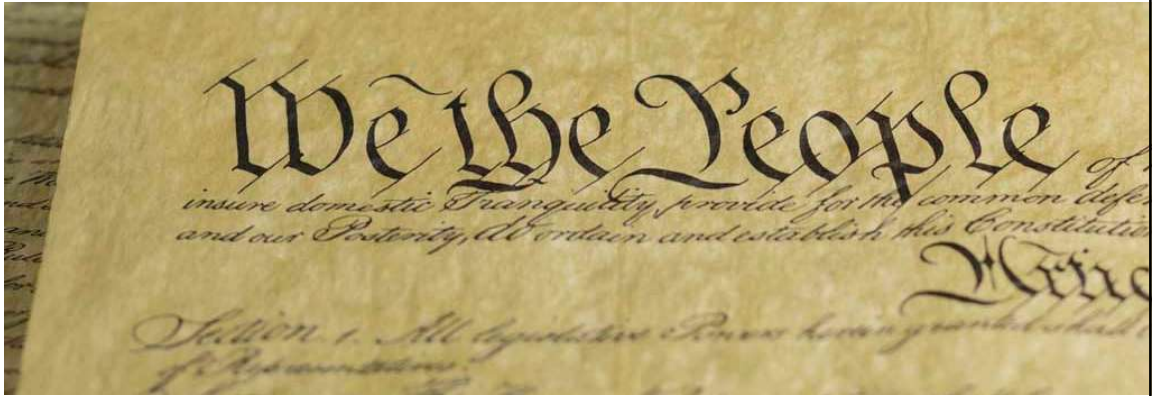 We the People of
insure domestic Tranquility, provide for the common defen
and our Posterity, do ordain and establish this Constitutio
Artic
Section. 1. All legislative Powers herein granted shall
of Representatives.